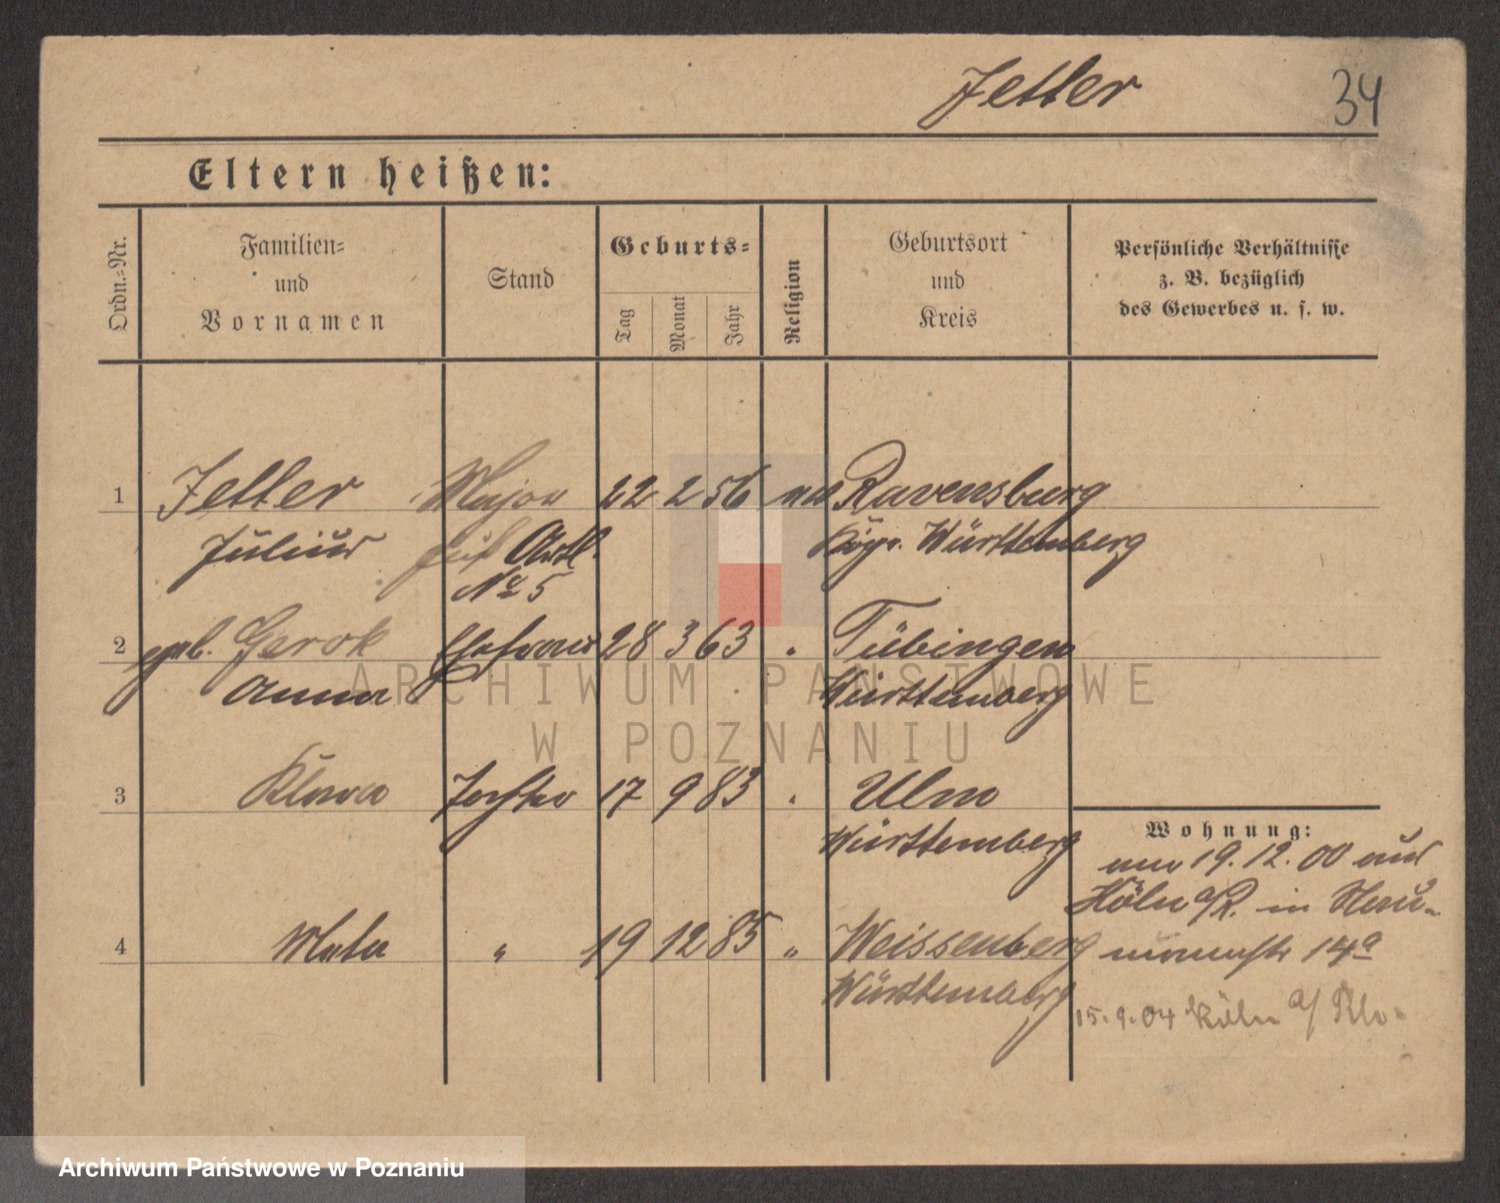 Jetter 34
Eltern heißen:
Ordn.-Nr.
Familien-
und
Vornamen
Stand
Geburts-
Tag
Monat
Jahr
Religion
Geburtsort
und
Kreis
Persönliche Verhältnisse
z. B. bezüglich
des Gewerbes u. s. w.
1 Jetter Major 22 2 56 Ravensburg
Julius Fuß Artl. Württemberg
No 5
2 geb. Gerok Ehefrau 28 3 63 " Tübingen
Anna Württemberg
3 Klara Tochter 17 9 83 " Ulm
Württemberg
4 " 19 12 85 " Weissenberg
Württemberg
Wohnung:
19.12.00 aus
Köln a/R. in
14a
15.9.04 Köln a/ Rh.
ARCHIWUM PAŃSTWOWE
W POZNANIU
Archiwum Państwowe w Poznaniu